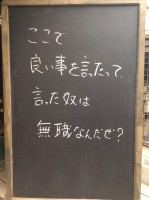 ここで
良い事を言ったって、
言った奴は
無職なんだぜ?